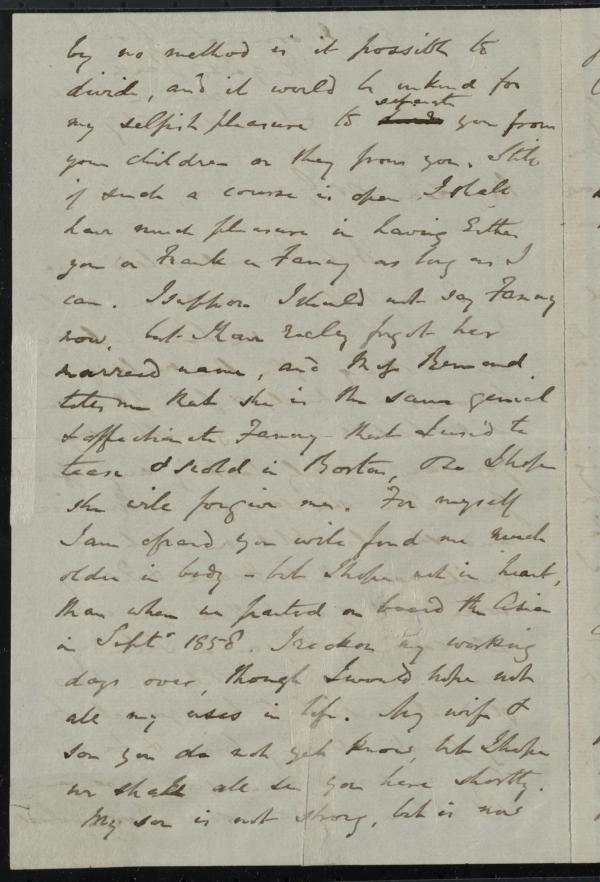 by no method is it possible to
divide, and it would be unkind for
my selfish pleasure to separate you from
your children or they from you. Still
if such a course is open I shall
have much pleasure in having Either
you or Frank or Fanny as long as I
can. I suppose I should not say Fanny
now, but I have really forgot her
married name, and Miss
tells me that she is the same genial
& affectionate Fanny that I used to
tease & scold in Boston, the I hope
she will forgive me. For myself
I am afraid you will find me much
older in body - but I hope not in heart,
than when we parted on board the Asia
in Sept. 1858. I reckon my working
days over, though I would hope not
all my uses in life. My wife &
son you do not yet know, but I hope
we shall all see you here shortly.
My son is not strong, but is now